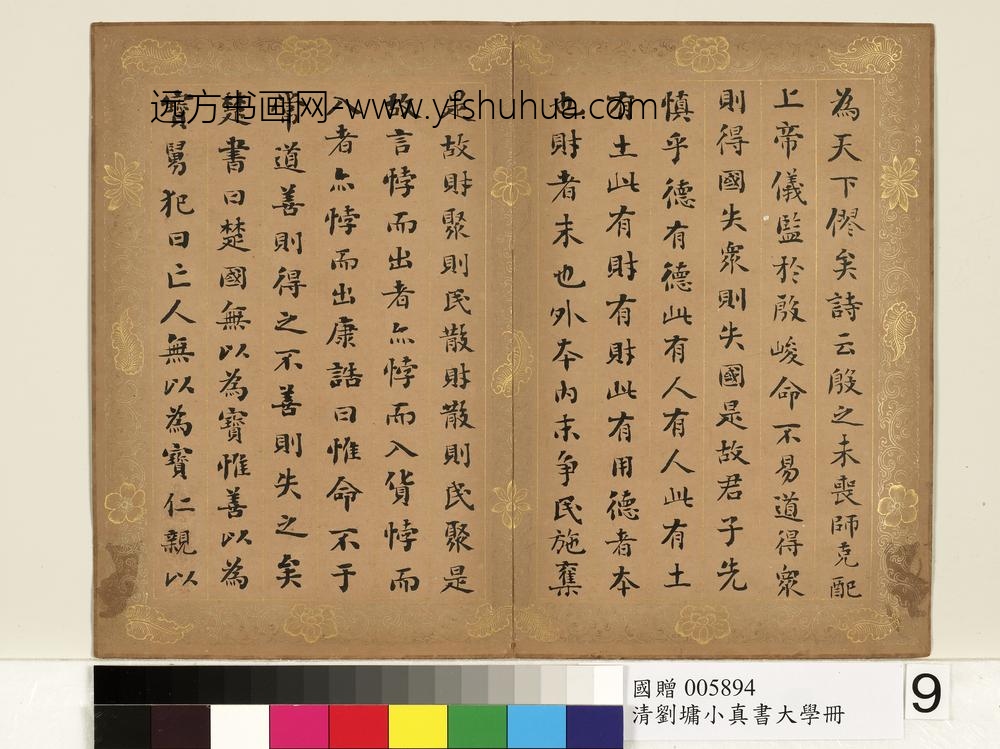 為天下僇矣詩云殷之未喪師克配
上帝儀監於殷峻命不易道得衆
則得國失衆則失國是故君子先
慎乎德有德此有人有人此有土
有土此有財有財此有用德者本
也財者末也外本內末争民施奪
是故財聚則民散財散則民聚是
故言悖而出者亦悖而入貨悖而
入者亦悖而出康誥曰惟命不于
常道善則得之不善則失之矣
楚書曰楚國無以為寶惟善以為
寶舅犯曰亡人無以為寶仁親以
远方书画网-www.yfshuhua.com
國贈 005894
清劉墉小真書大學冊
9